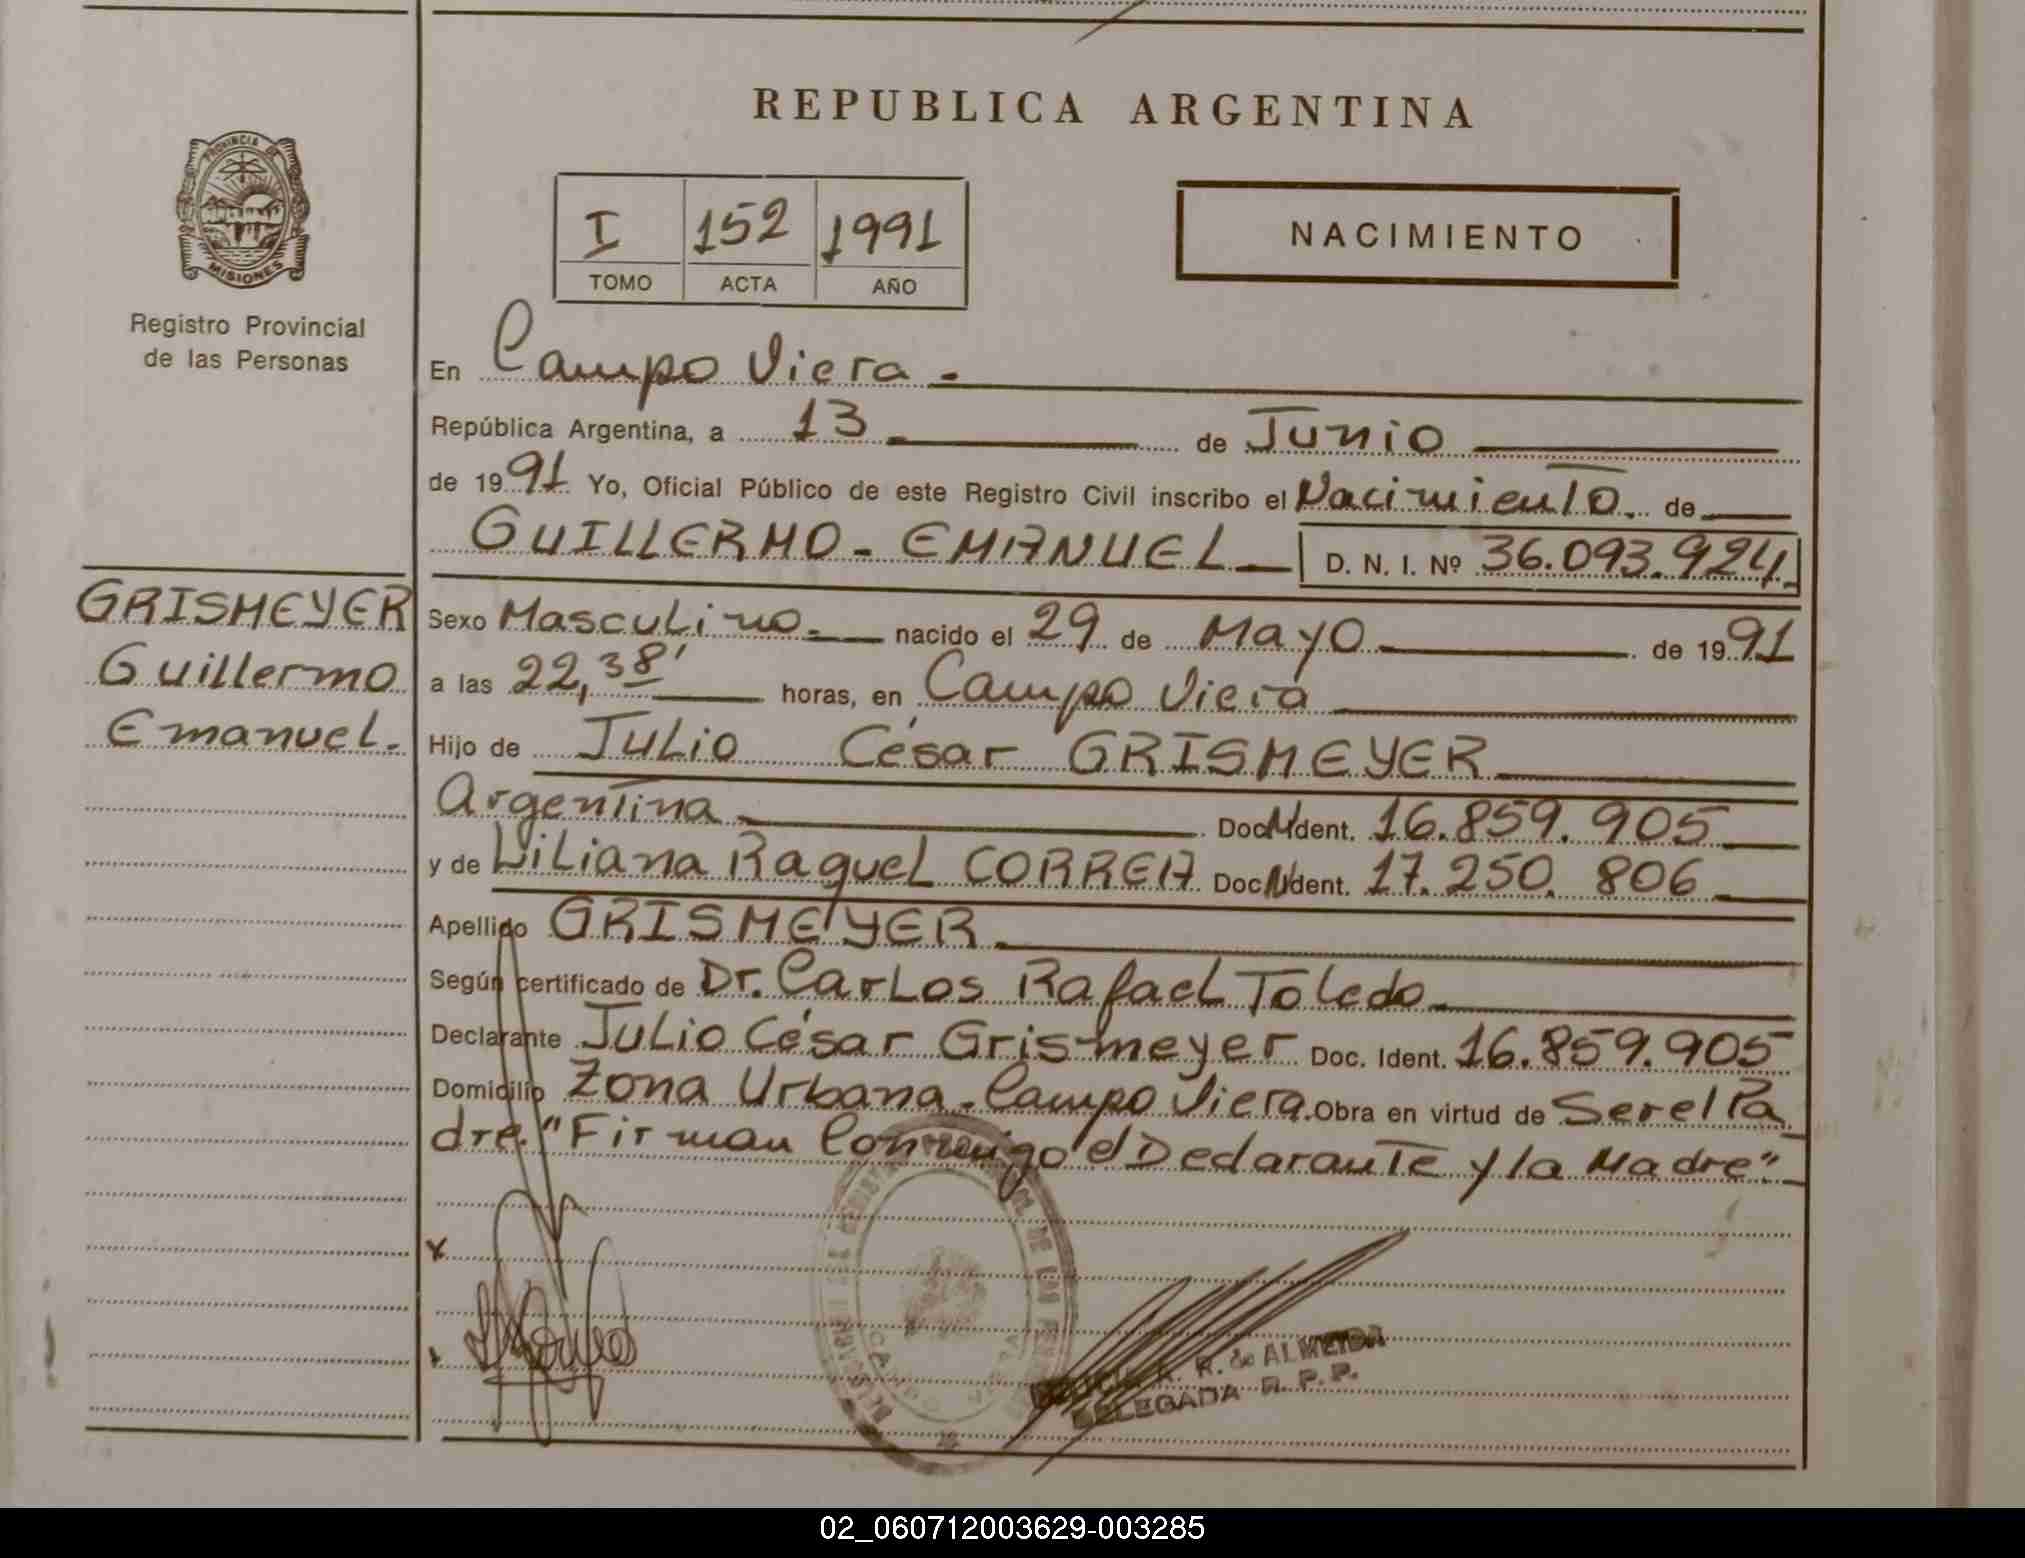 REPUBLICA ARGENTINA
PROVINCIA DE
MISIONES
Registro Provincial
de las Personas
I 152 1991
TOMO ACTA AÑO
NACIMIENTO
En Campo Viera.
República Argentina, a 13 de Junio
de 1991 Yo, Oficial Público de este Registro Civil inscribo el Nacimiento. de
GUILLERMO - EMANUEL D. N. I. Nº 36.093.924
GRISMEYER
Guillermo
Emanuel.
Sexo Masculino. nacido el 29 de Mayo de 1991
a las 22,38' horas, en Campo Viera
Hijo de Julio César GRISMEYER
Argentina Doc. Ident. 16.859.905
y de Liliana Raquel CORREA Doc. Ident. 17.250.806
Apellido GRISMEYER
Según certificado de Dr. Carlos Rafael Toledo
Declarante Julio César Grismeyer Doc. Ident. 16.859.905
Domicilio Zona Urbana. Campo Viera. Obra en virtud de Ser el Pa
dre. "Firman Conmigo el Declarante y la Madre"
R. de ALMEIDA
DELEGADA R. P. P.
02_060712003629-003285